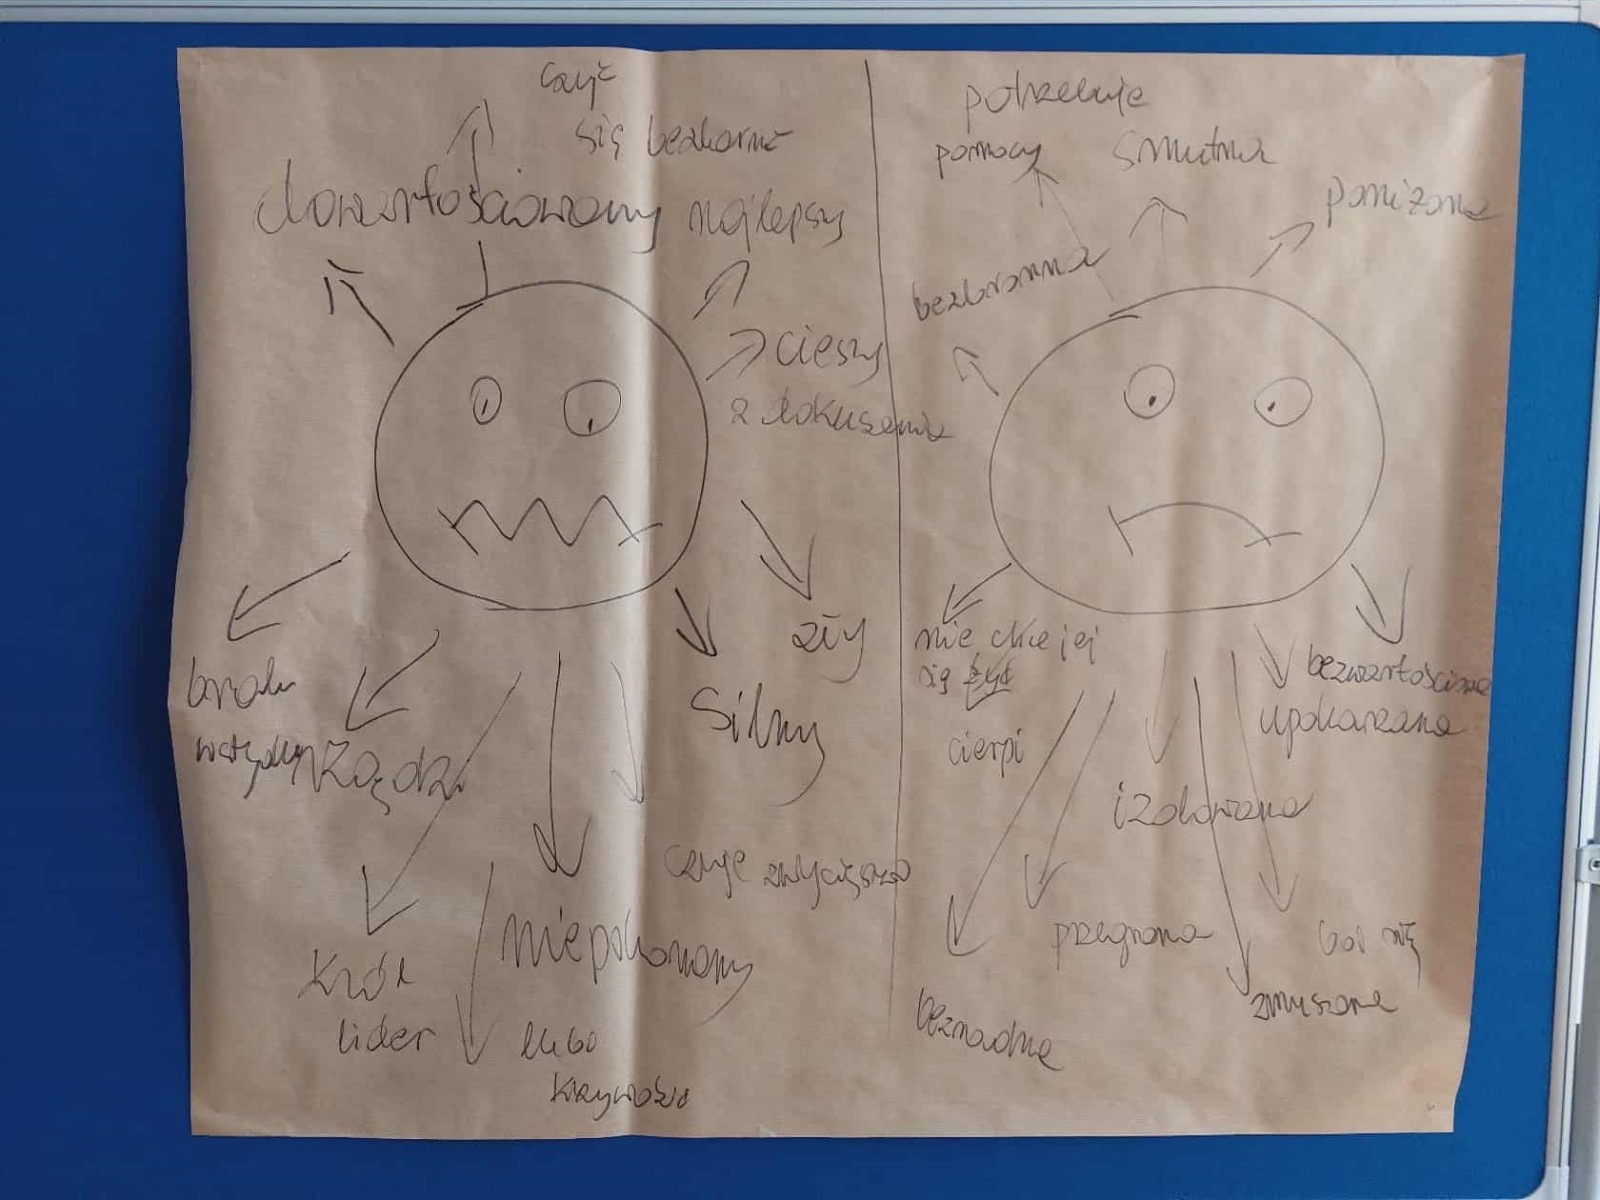 czuje
się bezkarnie
dowartościowany
najlepszy
cieszy
z dokuszania
zły
silny
brak
wstydu
rządzi
czuje zwycięstwo
niepokonany
król
lider
lubo
krzywdzić
potrzebuje
pomocy
smutna
poniżona
bezbronna
nie chce jej
się żyć
cierpi
bezwartościowa
upokarzana
izolowana
przegrana
boi się
zmuszona
bezradna